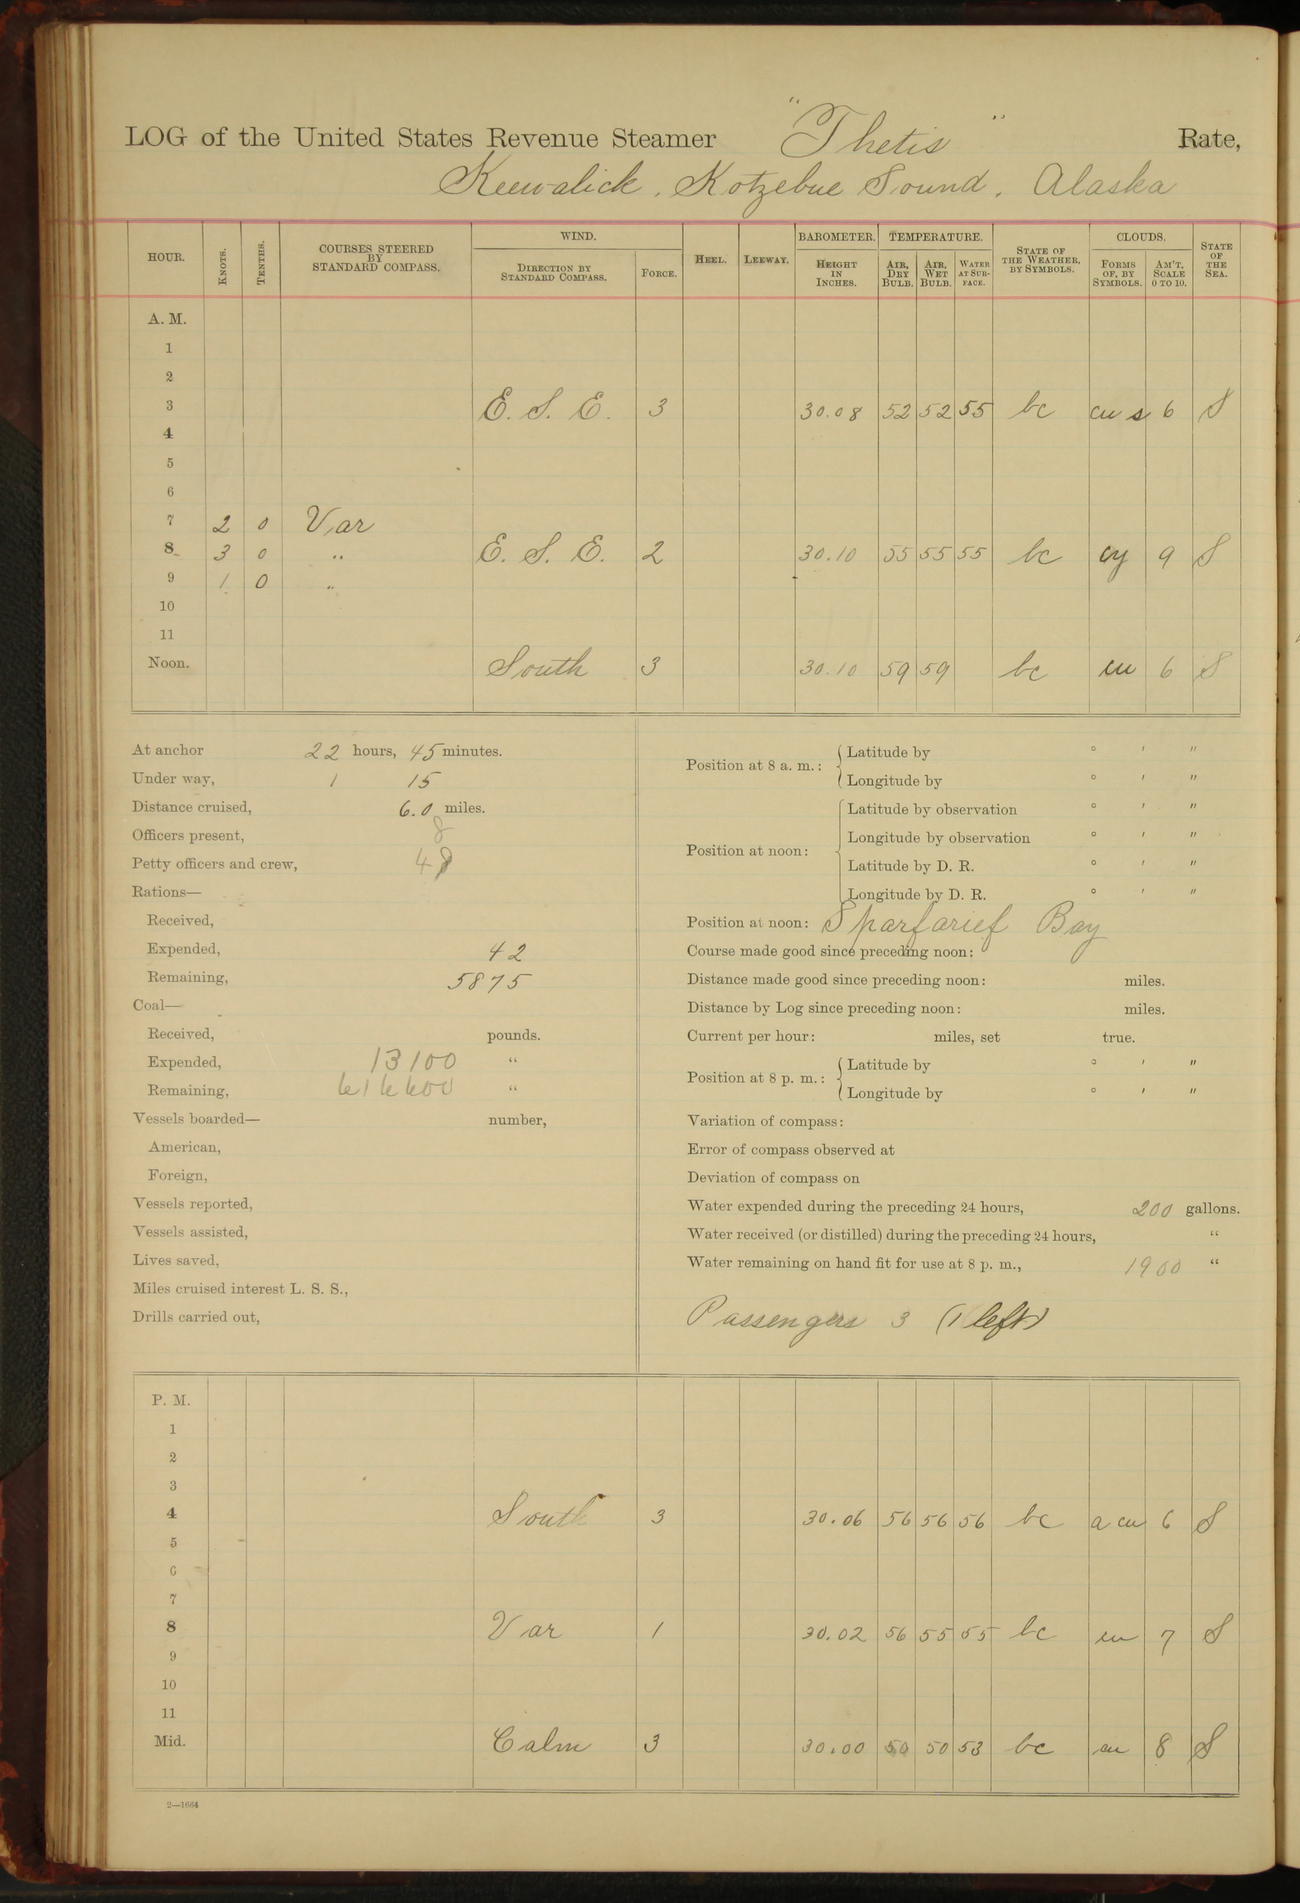 LOG of the United States Revenue Steamer "Thetis" Rate,
Keewalick, Kotzebue Sound, Alaska
HOUR. KNOTS. TENTHS. COURSES STEERED BY STANDARD COMPASS. WIND. DIRECTION BY STANDARD COMPASS. FORCE. HEEL. LEEWAY. BAROMETER. HEIGHT IN INCHES. TEMPERATURE. AIR, DRY BULB. AIR, WET BULB. WATER AT SURFACE. STATE OF THE WEATHER, BY SYMBOLS. CLOUDS. FORMS OF, BY SYMBOLS. AM'T. SCALE 0 TO 10. STATE OF THE SEA.
A. M.
1
2
3 E. S. E. 3 30.08 52 52 55 bc cu s 6 S
4
5
6
7 2 0 Var
8 3 0 " E. S. E. 2 30.10 55 55 55 bc cy 9 S
9 1 0 "
10
11
Noon. South 3 30.10 59 59 bc cu 6 S
At anchor 22 hours, 45 minutes.
Under way, 1 15
Distance cruised, 6.0 miles.
Officers present, 8
Petty officers and crew, 48
Rations—
Received,
Expended, 42
Remaining, 5875
Coal—
Received, pounds.
Expended, 13100 "
Remaining, 616600 "
Vessels boarded— number,
American,
Foreign,
Vessels reported,
Vessels assisted,
Lives saved,
Miles cruised interest L. S. S.,
Drills carried out,
Position at 8 a. m.: Latitude by ° ' "
Longitude by ° ' "
Position at noon: Latitude by observation ° ' "
Longitude by observation ° ' "
Latitude by D. R. ° ' "
Longitude by D. R. ° ' "
Position at noon: Sparfarief Bay
Course made good since preceding noon:
Distance made good since preceding noon: miles.
Distance by Log since preceding noon: miles.
Current per hour: miles, set true.
Position at 8 p. m.: Latitude by ° ' "
Longitude by ° ' "
Variation of compass:
Error of compass observed at
Deviation of compass on
Water expended during the preceding 24 hours, 200 gallons.
Water received (or distilled) during the preceding 24 hours, "
Water remaining on hand fit for use at 8 p. m., 1900 "
Passengers 3 (1 left)
P. M.
1
2
3
4 South 3 30.06 56 56 56 bc a cu 6 S
5
6
7
8 Var 1 30.02 56 55 55 bc cu 7 S
9
10
11
Mid. Calm 3 30.00 50 50 53 bc cu 8 S
2—1664